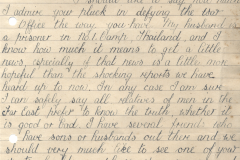 I admire your pluck in defying the War
Office the way you have. My husband is
a prisoner in No.1 Camp Thailand, and I
know how much it means to get a little
news, especially if that news is a little more
hopeful than the shocking reports we have
heard up to now. In any case I am sure
I can safely say all relatives of men in the
Far East prefer to know the truth, whether it
is good or bad. I have several friends who
have sons or husbands out there and we
should very much like to see one of your